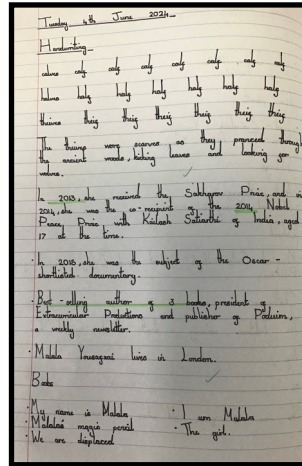 Tuesday 4th June 2024
Handwriting
calves calf calf calf calf calf calf
halves half half half half half
thieves thief thief thief thief thief
The thieves wore scarves as they pranced through
the ancient woods, kicking leaves and looking for
wolves.
In 2013, she received the Sakharov Prize, and in
2014, she was the co-recipient of the 2014 Nobel
Peace Prize with Kailash Satiarthi of India, aged
17 at the time.
· In 2015, she was the subject of the Oscar -
shortlisted documentary.
· Best-selling author of 3 books, president of
Extracurricular Productions and publisher of Podium,
a weekly newsletter.
· Malala Yousafzai lives in London.
Books
· My name is Malala · I am Malala
· Malalas magic pencil · The girl.
· We are displaced